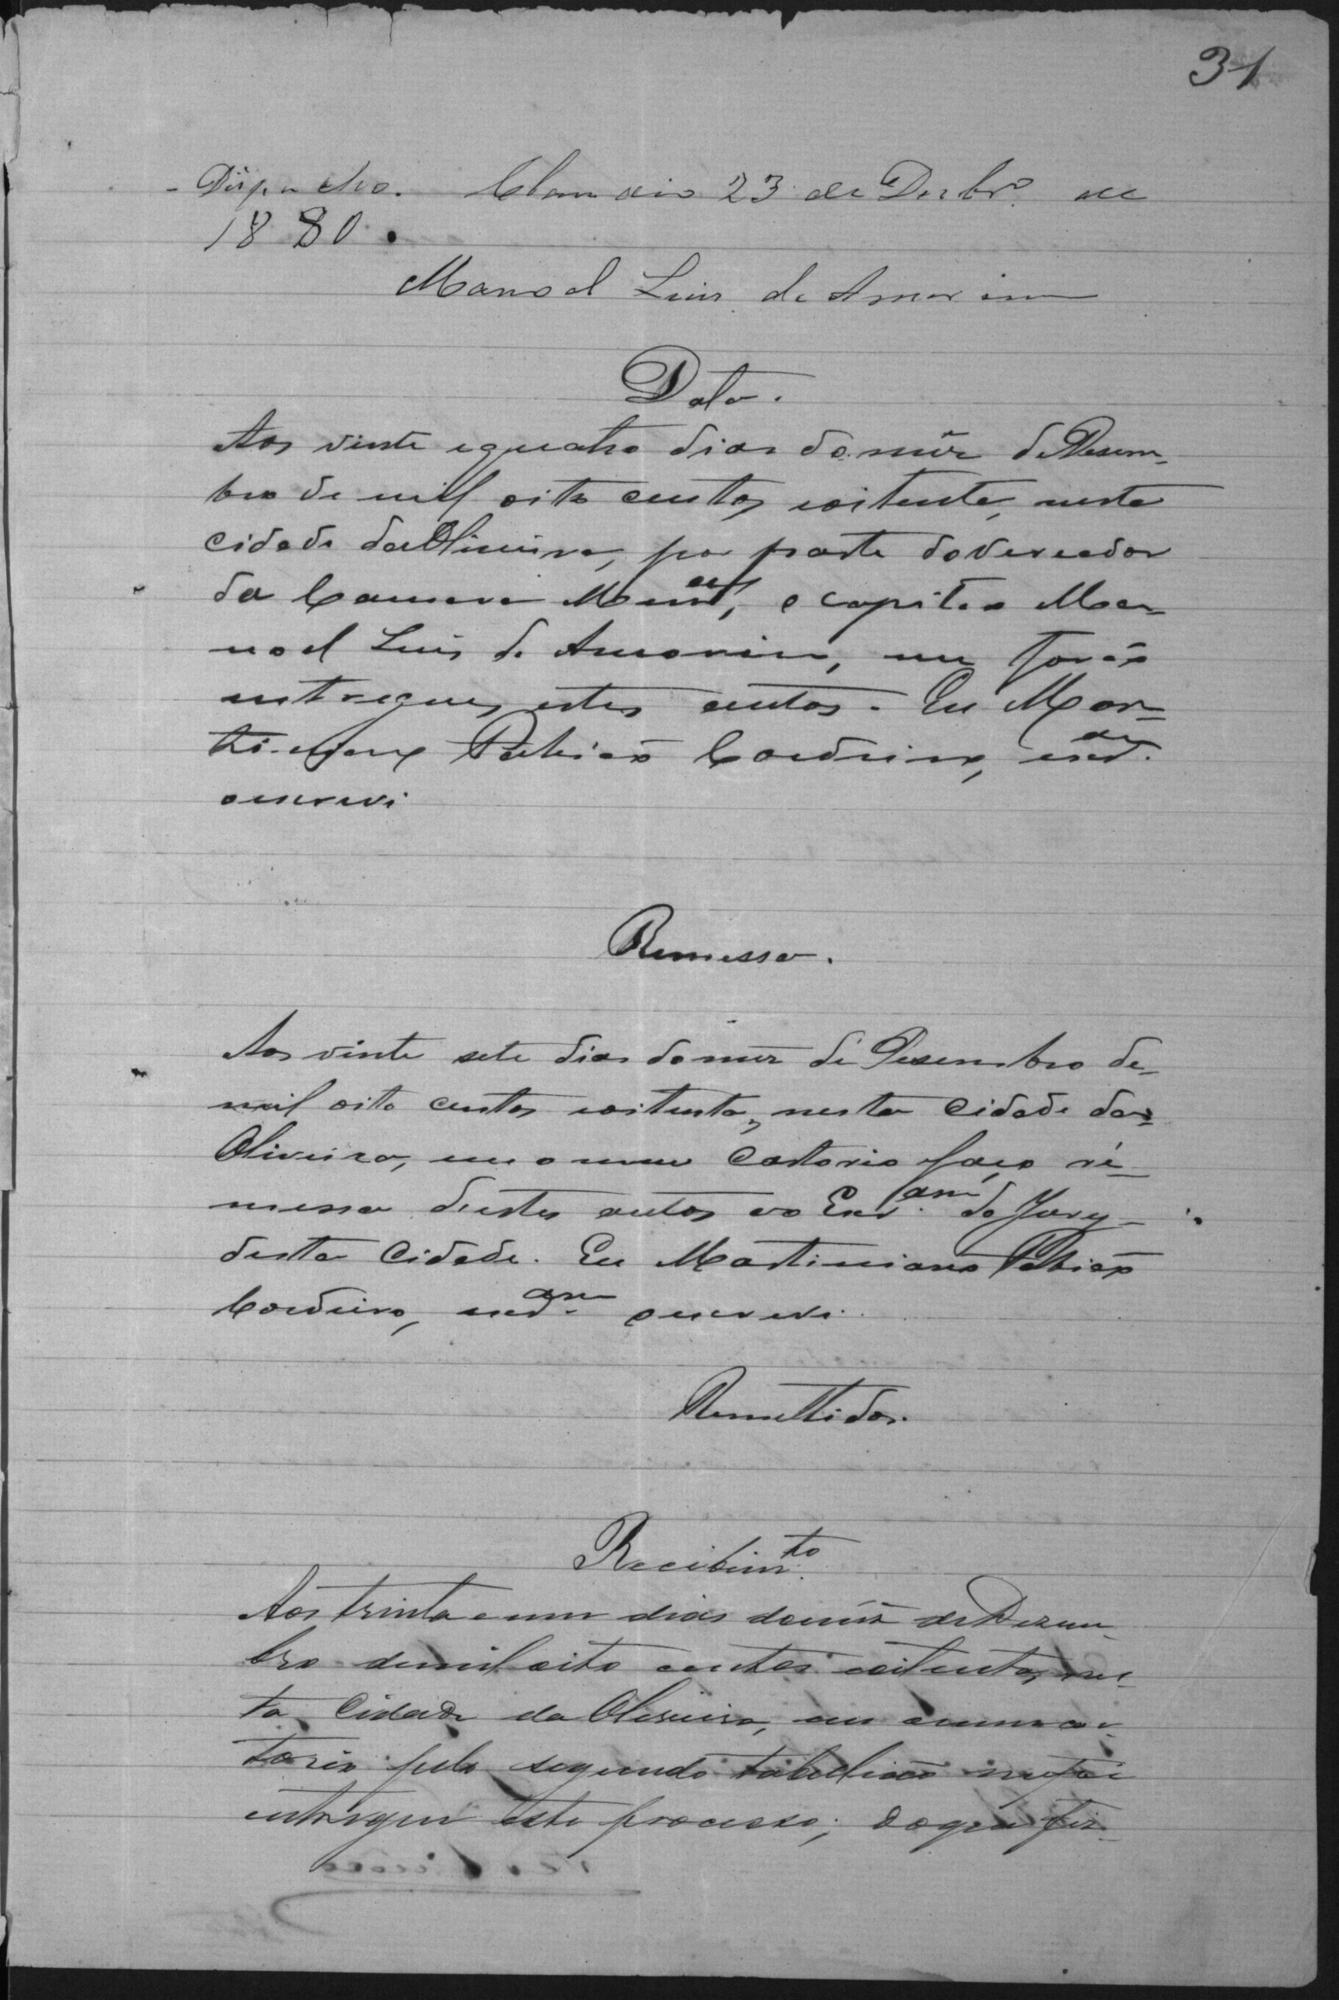 31
Despacho. Claudio 23 de Dezbrº de
1880.
Manoel Luis de Amorim
Data.
Aos vinte equatro dias do mêz de Desem-
bro de mil oito centos eoitenta, nesta
cidade da Oliveira, por parte do vereador
da Camara Munal, o capitão Ma-
noel Luis de Amorim, me forão
entregues estes autos. Eu Mar-
tiniano Patricio Cordeiro, escram
o escrevi
Remessa.
Aos vinte sete dias do mez de Desembro de
mil oito centos eoitenta, nesta Cidade da
Oliveira, em o meu Cartorio faço re-
messa destes autos ao Escram do Jury
desta Cidade. Eu Martiniano Patricio
Cordeiro, escram o escrevi.
Remettidos.
Recebimto
Aos trinta e um dias do mêz de Dezem-
bro de mil oito centos eoitenta, nes-
ta Cidade da Oliveira, em o meu car-
torio pelo segundo tabellião me foi
entregue este processo; do que fiz